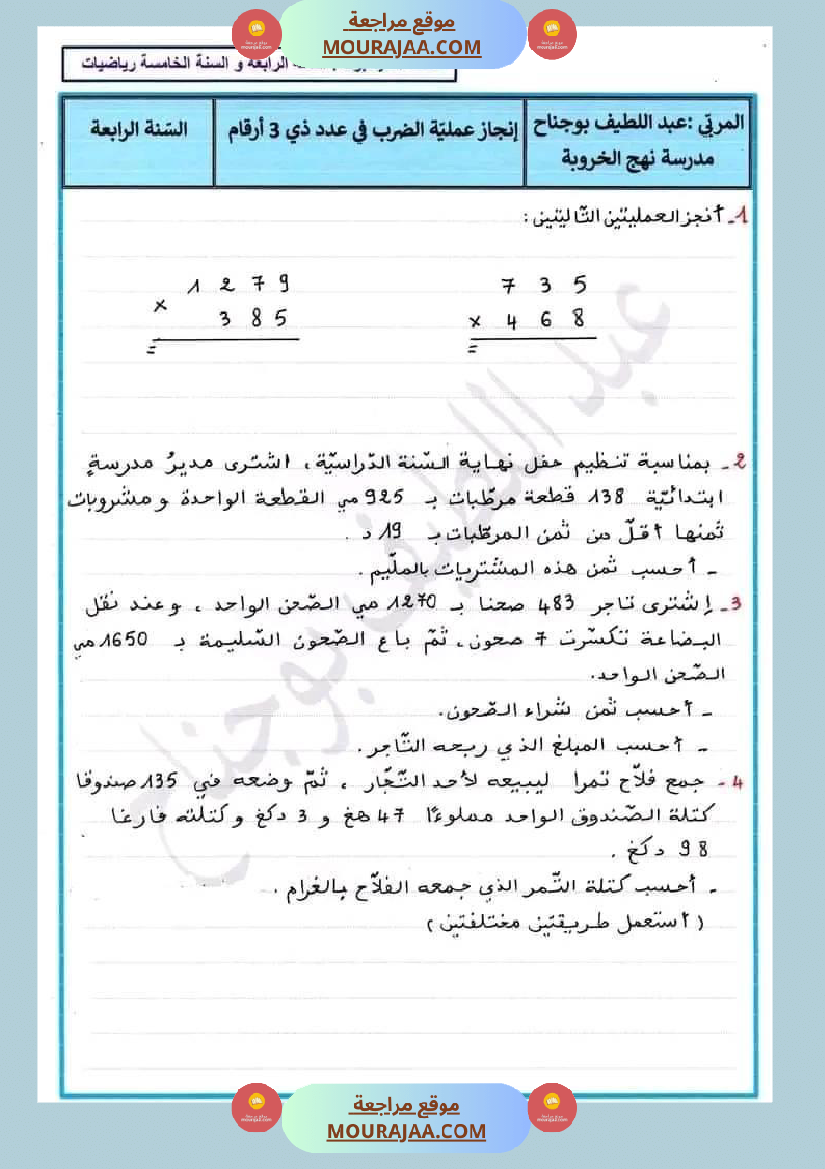 موقع مراجعة
MOURAJAA.COM
الرابعة و السنة الخامسة رياضيات
المربّي :عبد اللطيف بوجناح
مدرسة نهج الخروبة
إنجاز عمليّة الضرب في عدد ذي 3 أرقام
السّنة الرابعة
1ـ أنجز العمليتين التّاليتين :
7 3 5
x 4 6 8
=
1 2 7 9
x
3 8 5
=
2ـ بمناسبة تنظيم حفل نهاية السّنة الدّراسيّة ، اشترى مديرُ مدرسةٍ
ابتدائيّة 138 قطعة مرطّبات بـ 925 مي القطعة الواحدة و مشروبات
ثمنها أقلّ من ثمن المرطّبات بـ 19 د .
ـ أحسب ثمن هذه المشتريات بالملّيم .
3ـ إشترى تاجر 483 صحنا بـ 1270 مي الصّحن الواحد ، وعند نقل
البضاعة تكسّرت 7 صحون ، ثمّ باع الصّحون السّليمة بـ 1650 مي
الصّحن الواحد.
ـ أحسب ثمن شراء الصّحون.
ـ أحسب المبلغ الذي ربحه التّاجر .
4ـ جمع فلاّح تمرا ليبيعه لأحد التّجّار ، ثمّ وضعه في 135 صندوقا
كتلة الصّندوق الواحد مملوءًا 47 هغ و 3 دكغ وكتلته فارغا
98 دكغ .
ـ أحسب كتلة التّمر الذي جمعه الفلاّح بالغرام .
( أستعمل طريقتين مختلفتين )
عبد اللطيف بوجناح
موقع مراجعة
MOURAJAA.COM